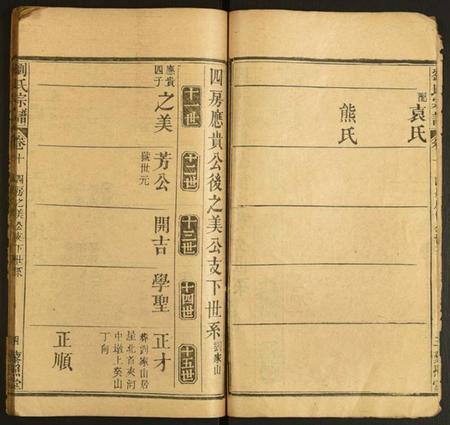 配袁氏
熊氏
四房應貴公後之美公支下世系 劉家山
十一世
十二世
十三世
十四世
十五世
應貴四子 之美
芳公 嶽世元
開吉
學聖
正才 葬劉家山居屋北首夾河中墩上癸山丁向
正順
劉氏宗譜 卷十 四房之美公支下世系 四